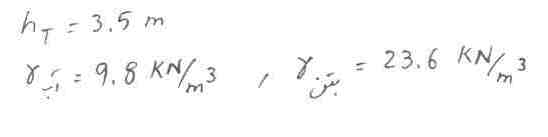 h_T = 3.5 m
γ_آب = 9.8 KN/m³ , γ_بتن = 23.6 KN/m³